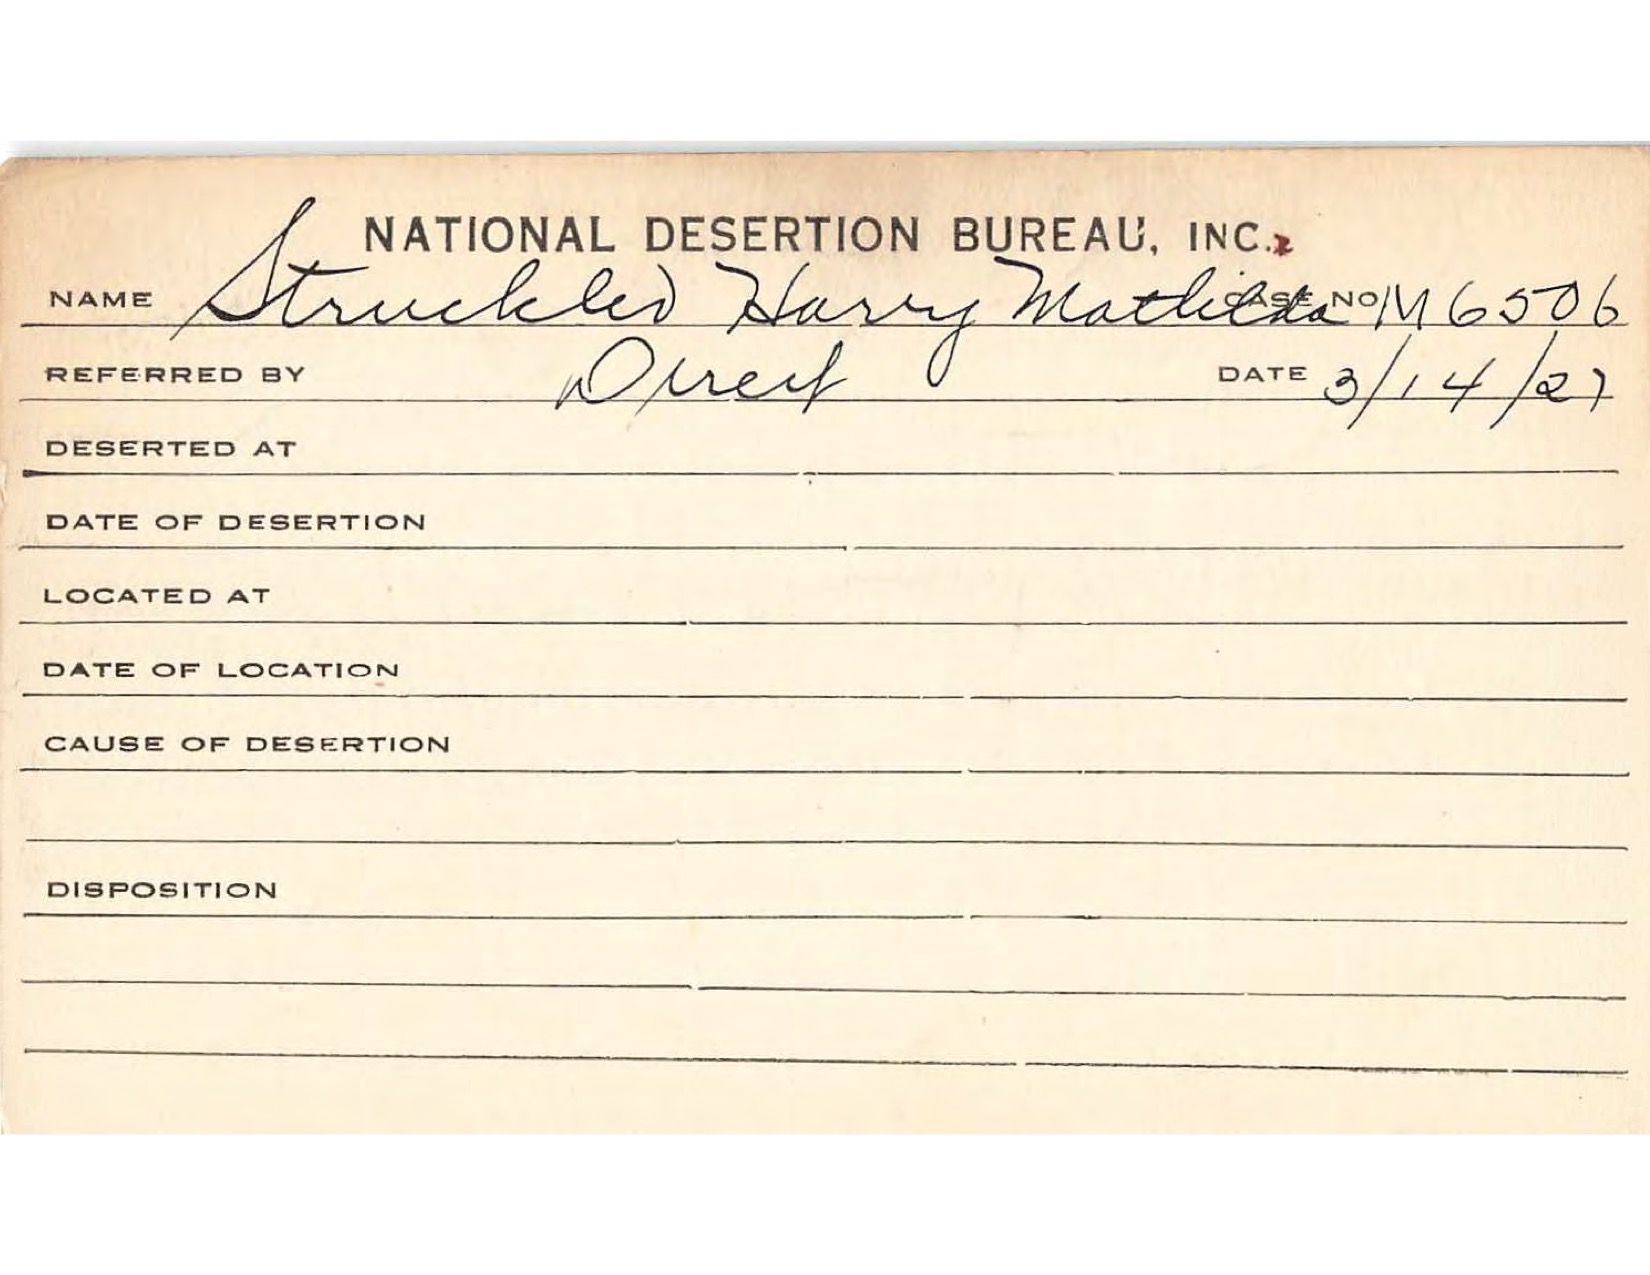 NATIONAL DESERTION BUREAU, INC.
NAME Struckler Harry Mathilda CASE NO M6506
REFERRED BY Direct DATE 3/14/27
DESERTED AT
DATE OF DESERTION
LOCATED AT
DATE OF LOCATION
CAUSE OF DESERTION
DISPOSITION